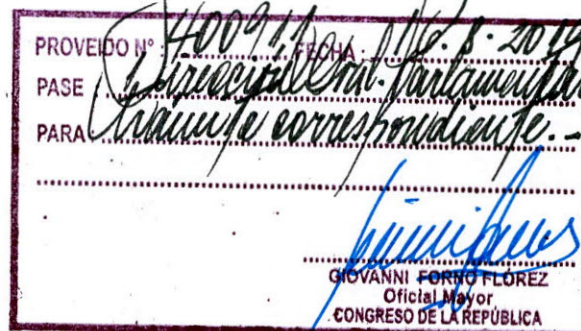 PROVEIDO N° : 400911 FECHA : 16.8.2019
PASE Dirección Gral. Parlamentar
PARA trámite correspondiente.-
GIOVANNI FORNO FLÓREZ
Oficial Mayor
CONGRESO DE LA REPÚBLICA